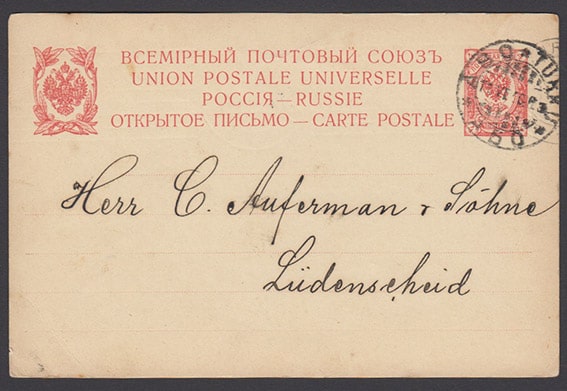 ВСЕМІРНЫЙ ПОЧТОВЫЙ СОЮЗЪ
UNION POSTALE UNIVERSELLE
РОССІЯ — RUSSIE
ОТКРЫТОЕ ПИСЬМО — CARTE POSTALE
Herr C. Auferman & Söhne
Lüdenscheid